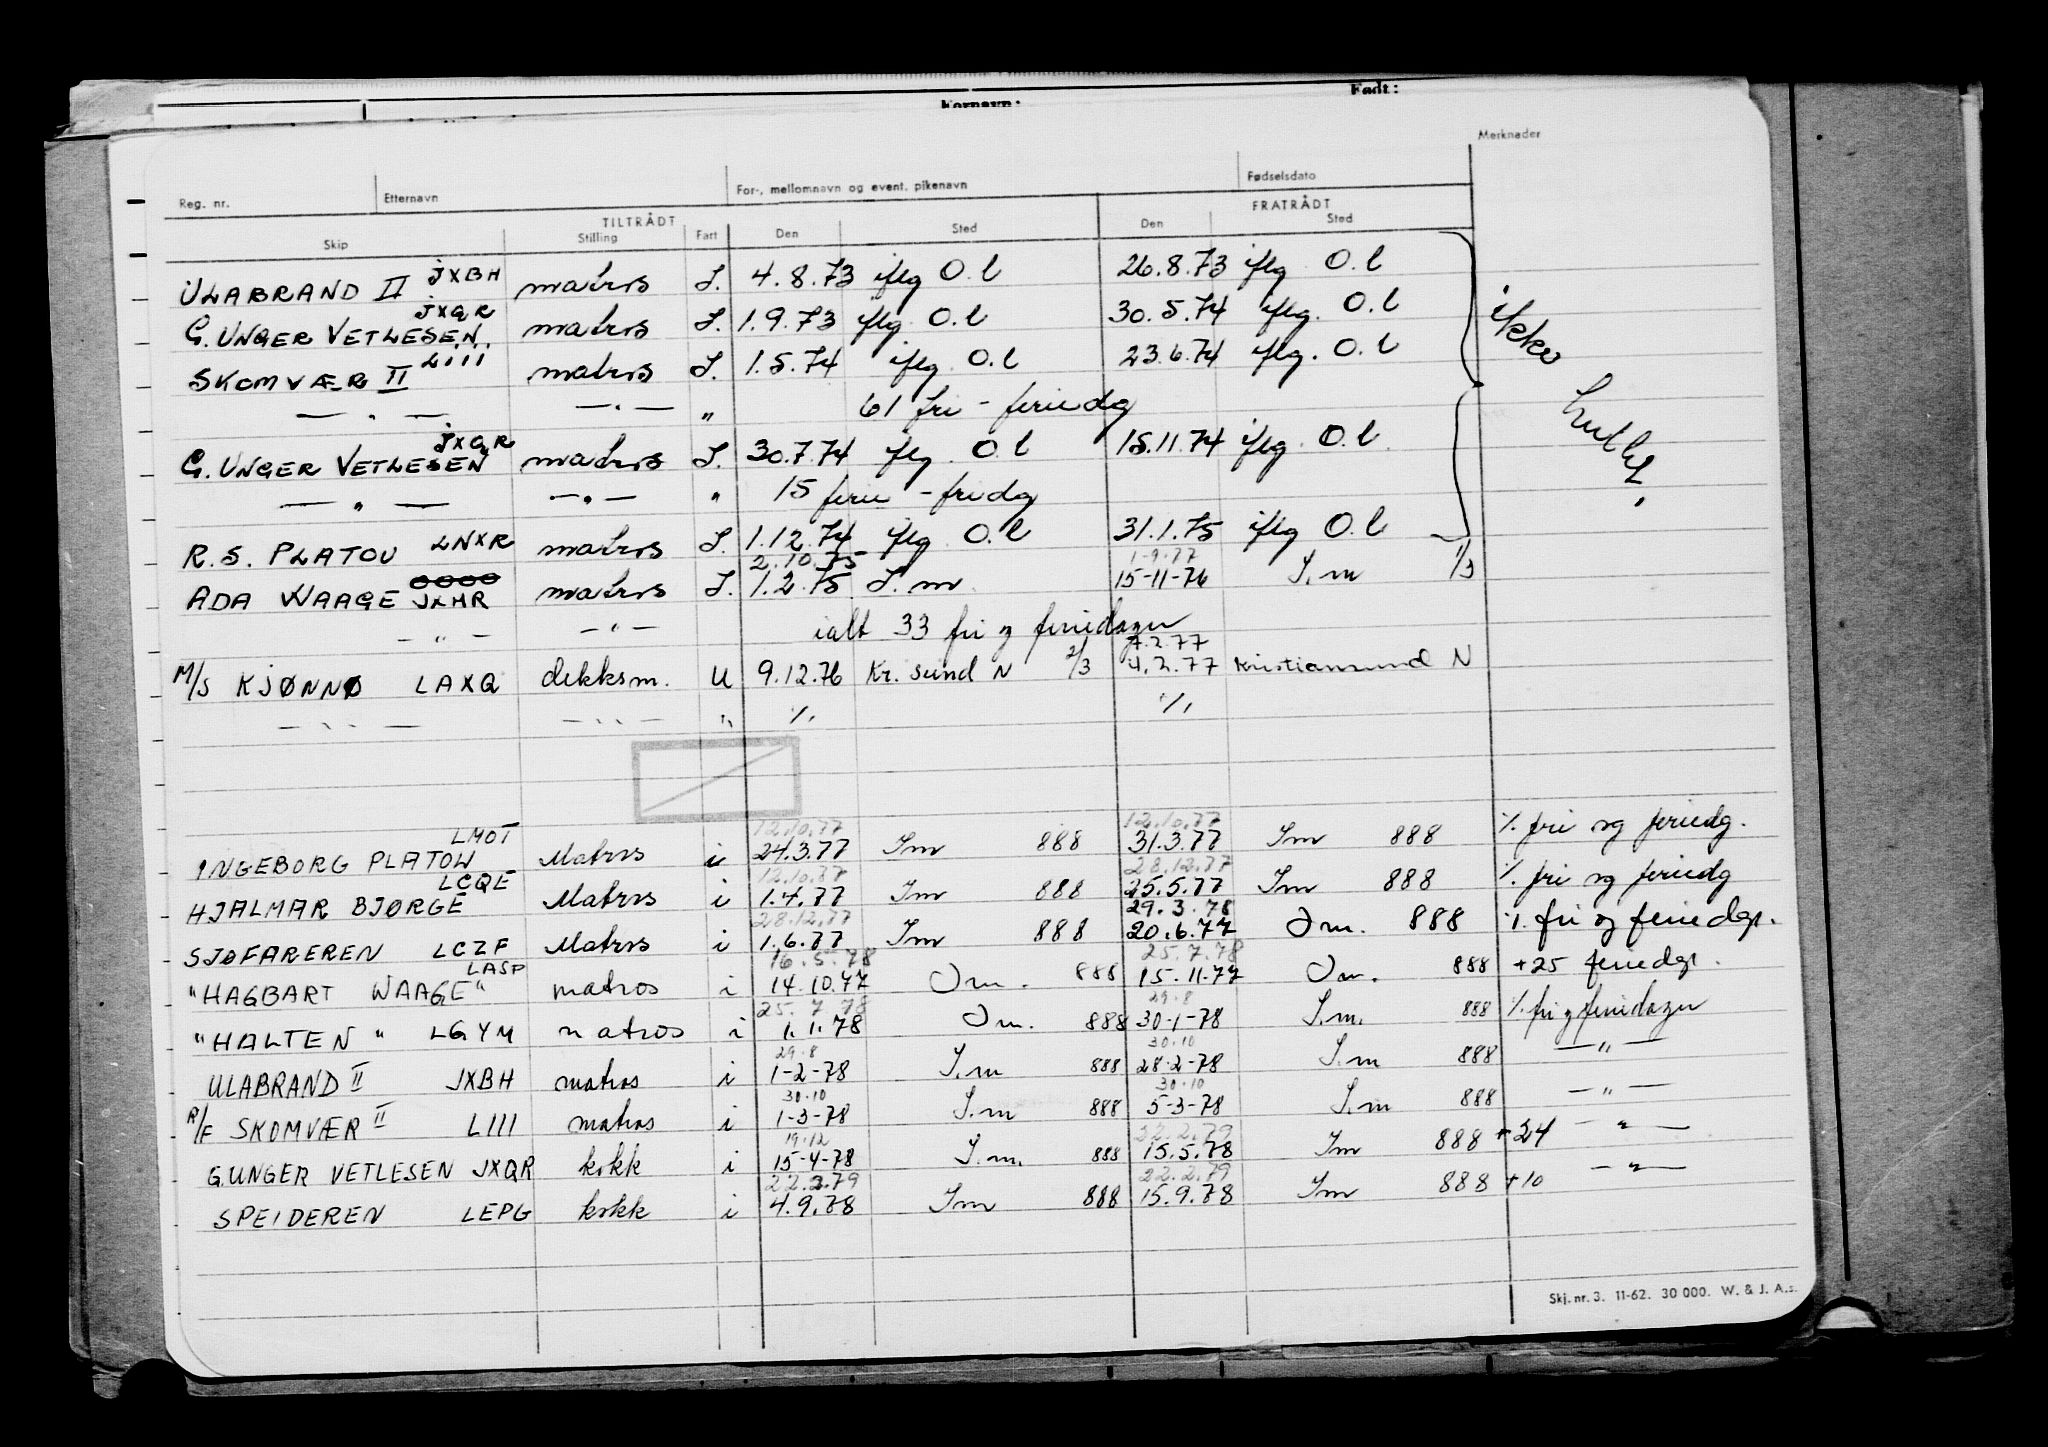 Fornavn: Født:
Merknader
Reg. nr. Etternavn For-, mellomnavn og event. pikenavn Fødselsdato
TILTRÅDT FRATRÅDT
Skip Stilling Fart Den Sted Den Sted
ULABRAND II JXBH matros I. 4.8.73 iflg O.l 26.8.73 iflg O.l
G. UNGER VETLESEN JXQR matros I. 1.9.73 iflg. O.l 30.5.74 iflg. O.l
ikke
SKOMVÆR II LIII matros I. 1.5.74 iflg. O.l 23.6.74 iflg. O.l
— " — — " — " 61 fri - feriedg
G. UNGER VETLESEN JXQR matros I. 30.7.74 iflg. O.l 15.11.74 iflg. O.l
— " — — " — " 15 ferie - fridg
R.S. PLATOU LNXR matros I. 1.12.74 iflg. O.l 31.1.75 iflg O.l
2.10.75 1-9-77
ADA WAAGE JXHR matros I. 1.2.75 I.m. 15-11-76 I.m 1/3
— " — — " — ialt 33 fri og feriedager
7.2.77
M/S KJØNNØ LAXQ dekksm. U 9.12.76 Kr. sund N 2/3 4.2.77 Kristiansund N
— " — — " — " ./. ./.
12.10.77 12.10.77
INGEBORG PLATOU LMOT Matros i 24.3.77 Im 888 31.3.77 Im 888 ./. fri og feriedg.
12.10.77 28.12.77
HJALMAR BJØRGE LCQE Matros i 1.4.77 Im 888 25.5.77 Im 888 ./. fri og feriedg
28.12.77 29.3.78
SJØFAREREN LCZF Matros i 1.6.77 Im 888 20.6.77 Im. 888 ./. fri og feriedgr.
16.5.78 25.7.78
"HAGBART WAAGE" LASP matros i 14.10.77 Im. 888 15.11.77 Im. 888 +25 feriedgr.
25.7.78 29.8
"HALTEN" LGYM matros i 1.1.78 Im. 888 30-1-78 I.m. 888 ./. fri og feriedager
29.8 30.10
ULABRAND II JXBH matros i 1-2-78 I.m 888 28-2-78 I.m 888 — " —
30.10 30.10
R/F SKOMVÆR II LIII matros i 1-3-78 I.m 888 5-3-78 I.m 888 — " —
19.12 22.2.79
G.UNGER VETLESEN JXQR kokk i 15-4-78 I.m. 888 15.5.78 Im 888 +24 — " —
22.2.79 22.2.79
SPEIDEREN LEPG kokk i 4.9.78 Im 888 15.9.78 Im 888 +10 — " —
Skj. nr. 3. 11-62. 30 000. W. & J. A.s.